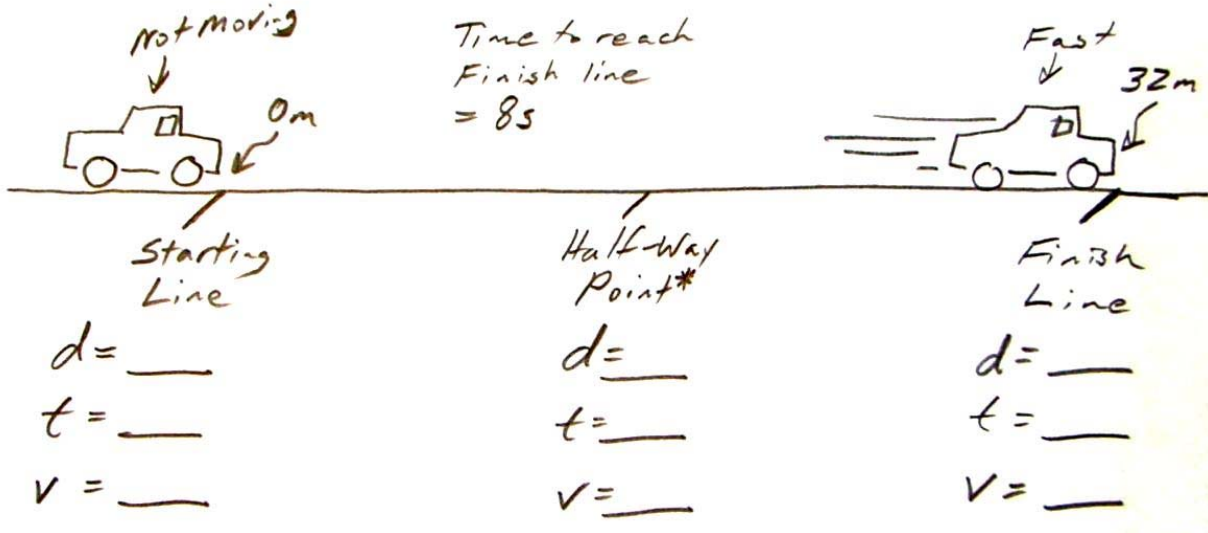 Not Moving
0m
Time to reach
Finish line
= 8s
Fast
32m
Starting
Line
Half-Way
Point*
Finish
Line
d= ___
t= ___
v= ___
d= ___
t= ___
v= ___
d= ___
t= ___
v= ___